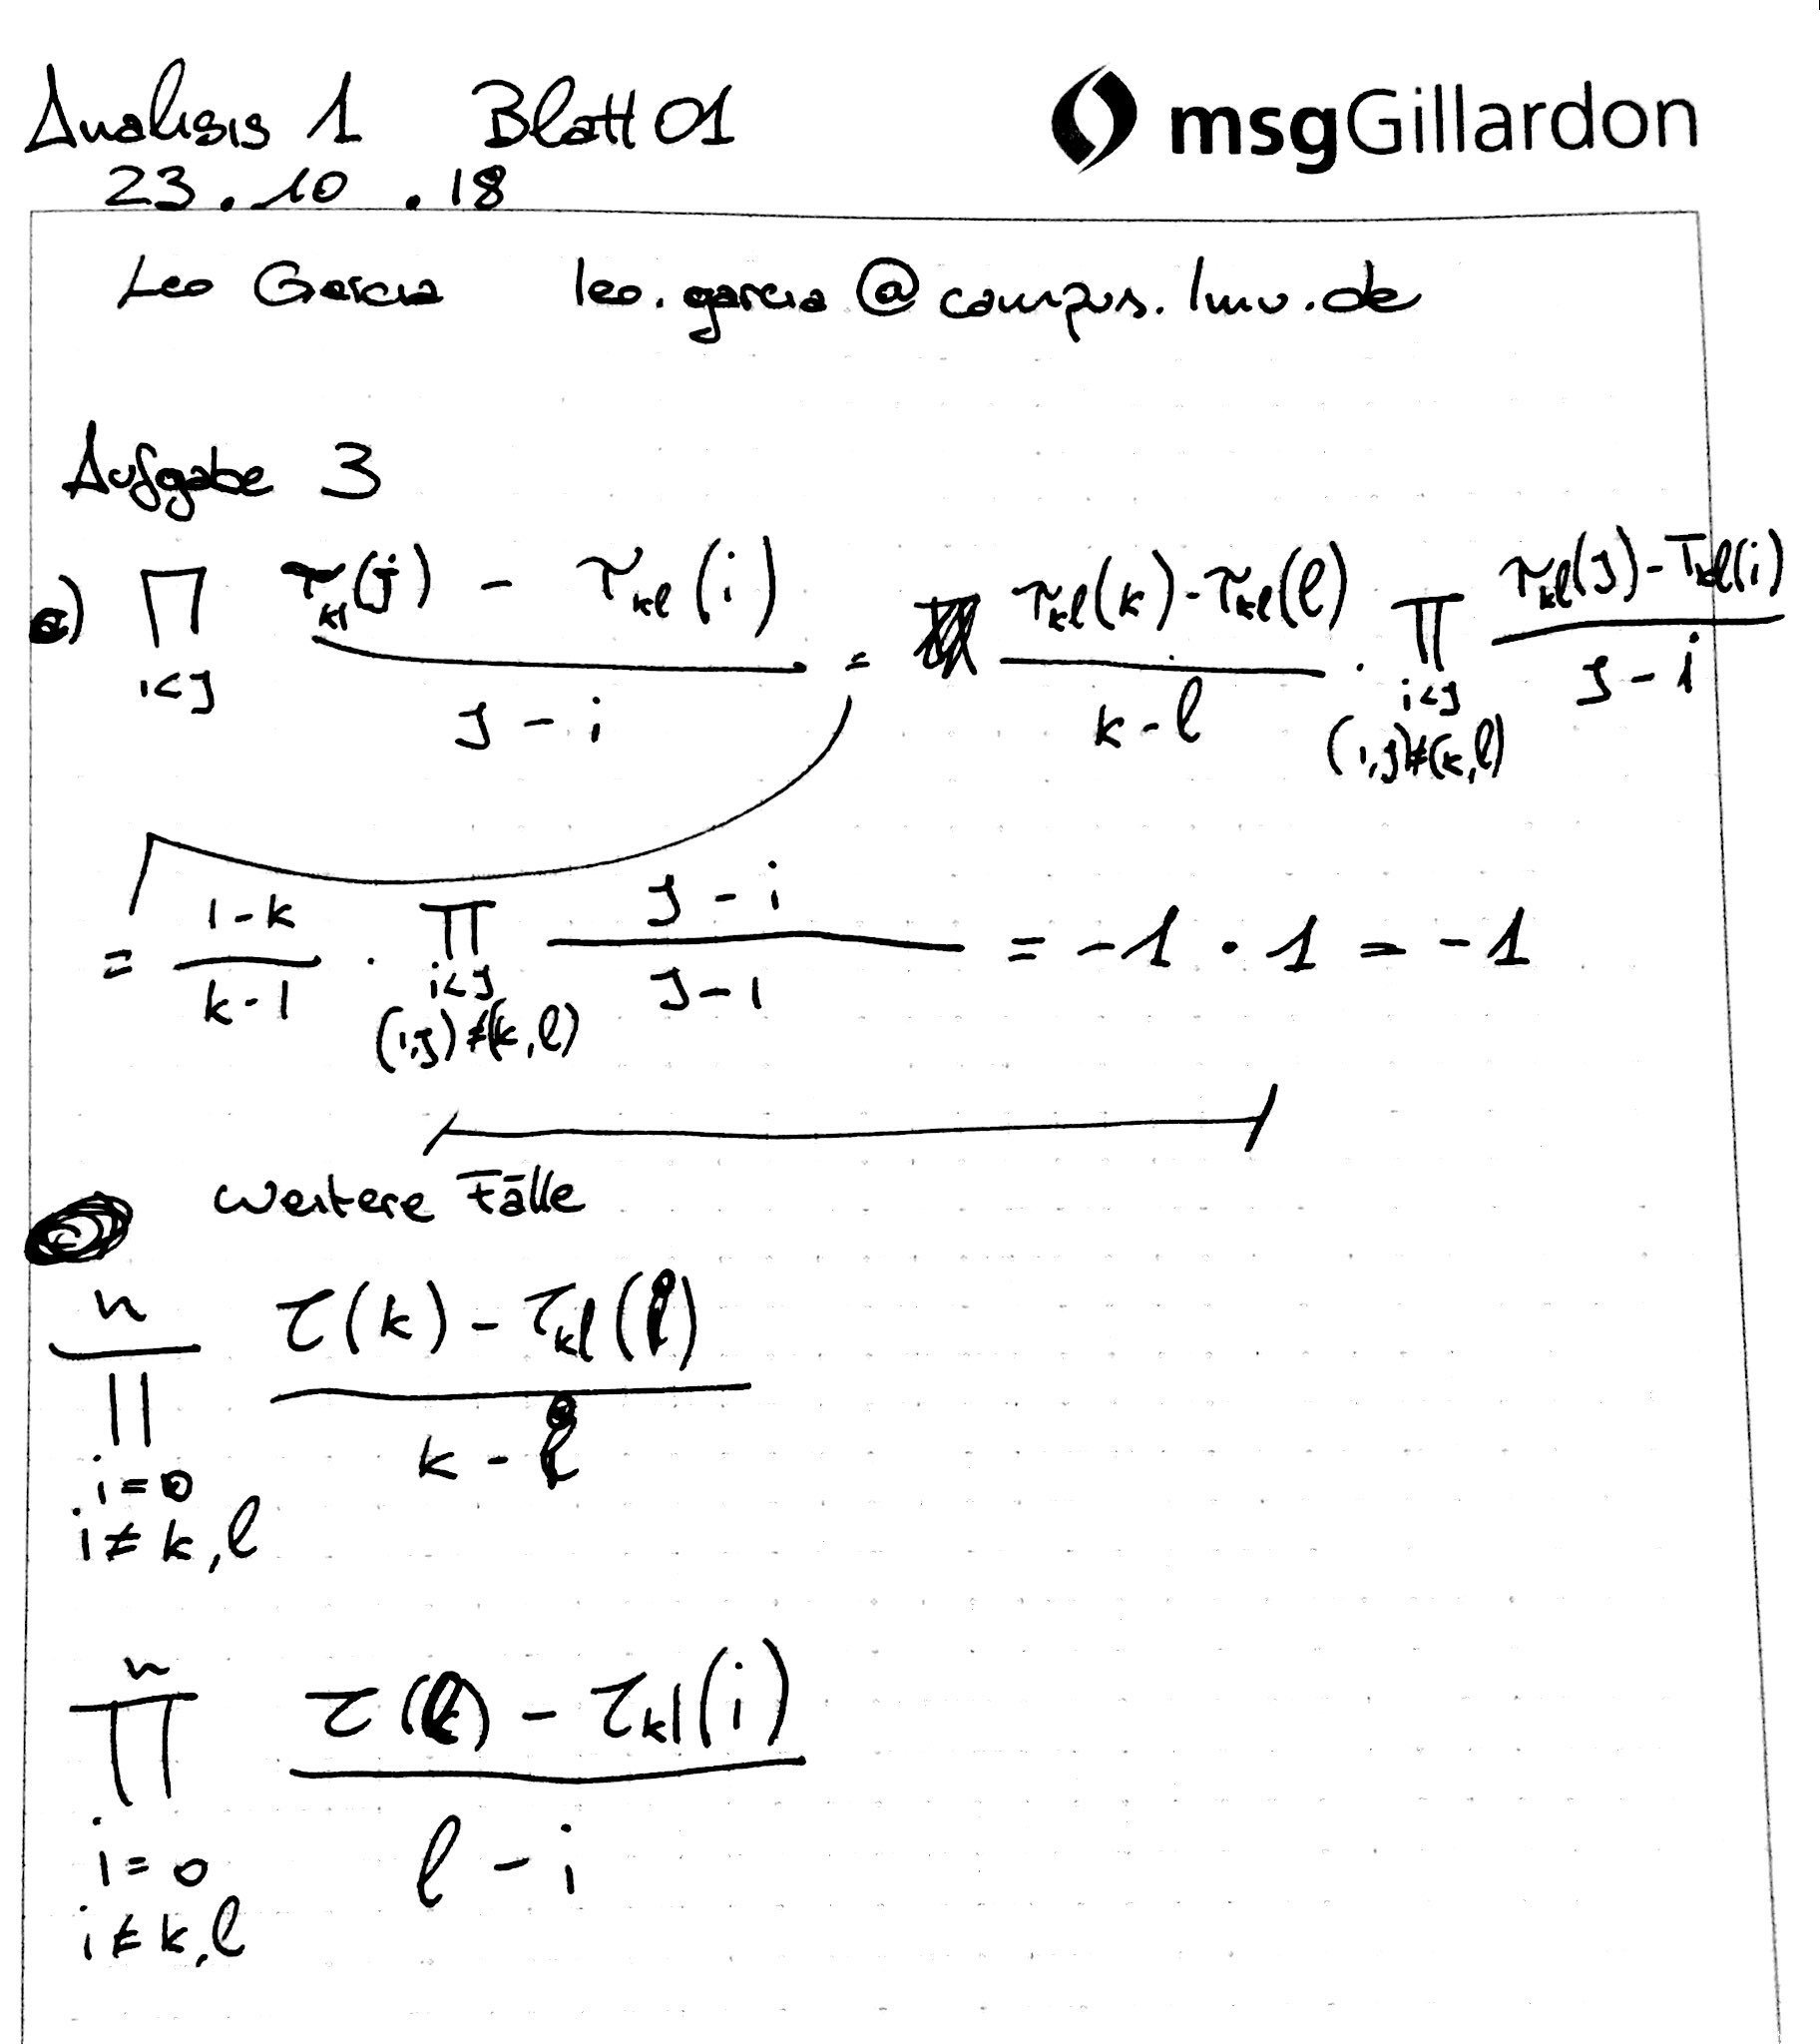 Analisis 1 Blatt 01
msgGillardon
23.10.18
Leo Garcia leo.garcia@campus.lmu.de
Aufgabe 3
a) ∏_{i<j} (τ_{kl}(j) - τ_{kl}(i))/(j - i) = (τ_{kl}(k) - τ_{kl}(l))/(k - l) · ∏_{i<j, (i,j)≠(k,l)} (τ_{kl}(j) - τ_{kl}(i))/(j - i)
= (l - k)/(k - l) · ∏_{i<j, (i,j)≠(k,l)} (j - i)/(j - i) = -1 · 1 = -1
Weitere Fälle
∏_{i=0, i≠k,l}^{n} (τ(k) - τ_{kl}(i))/(k - i)
∏_{i=0, i≠k,l}^{n} (τ(l) - τ_{kl}(i))/(l - i)